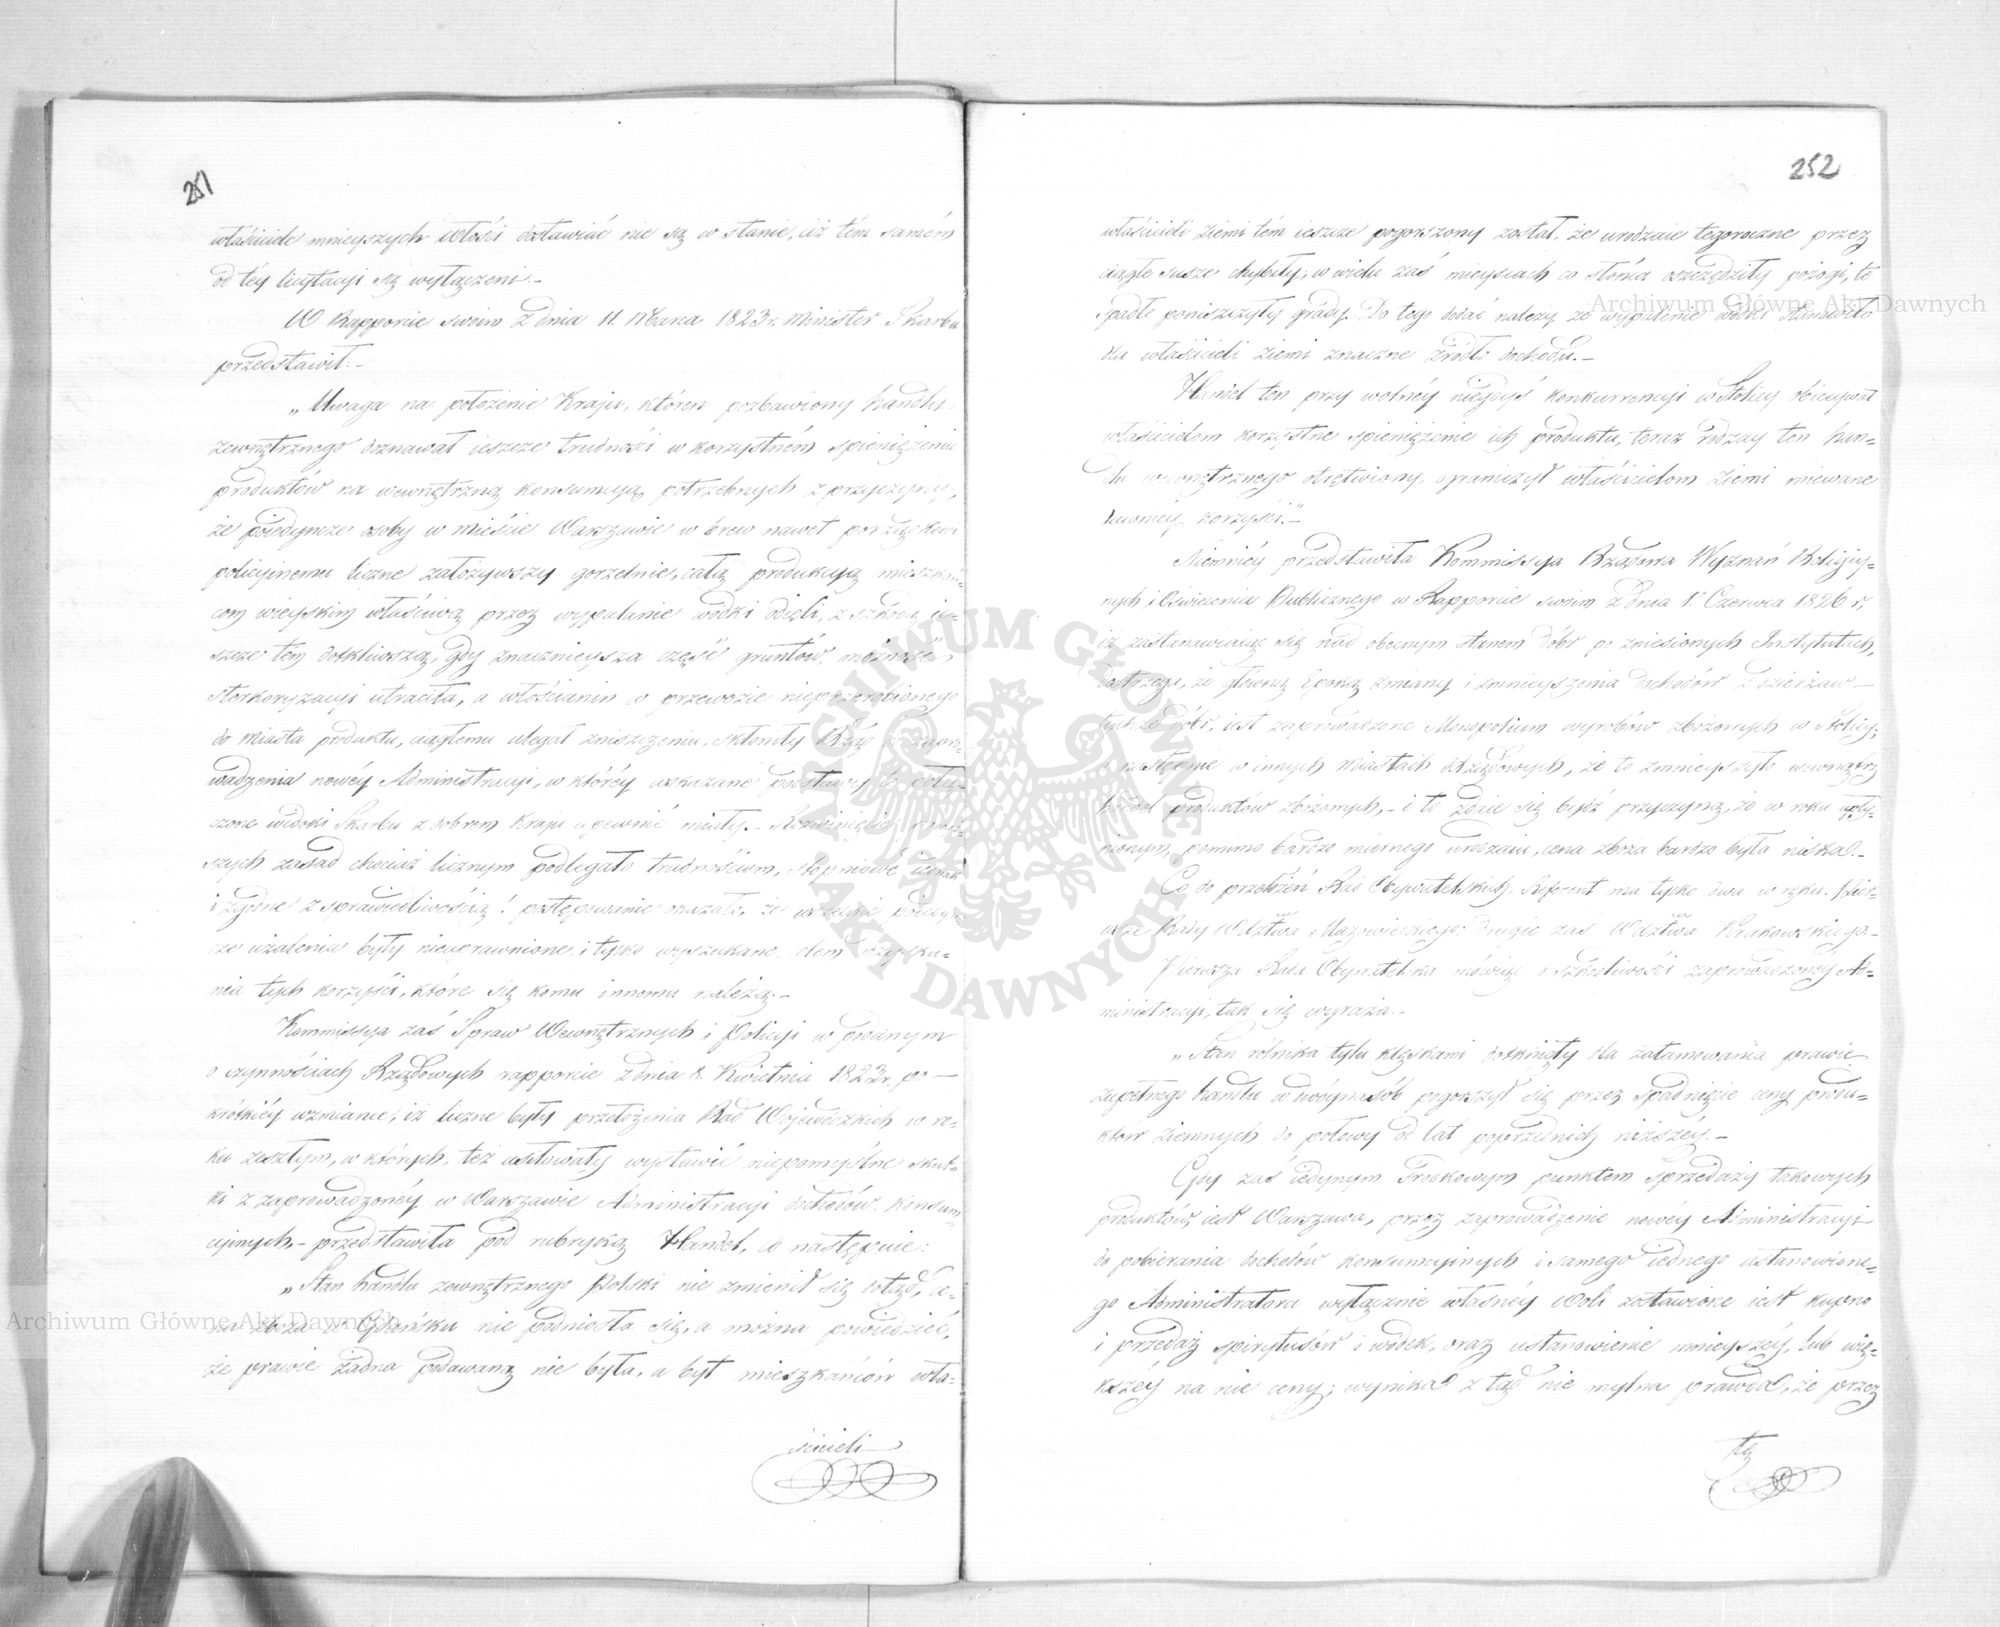 251
właściciele mnieyszych włości dostawiać nie są w stanie, iż tém samém
od téy licytacyi są wyłączeni.-
W Rapporcie swoim z dnia 11. Marca 1823 r. Minister Skarbu
przedstawił:-
„Uwaga na położenie Kraju, któren pozbawiony handlu
zewnętrznego doznawał ieszcze trudności w korzystném spieniężeniu
produktów na wewnętrzną konsumcyą potrzebnych z przyczyny,
że poiedyncze osoby w mieście Warszawie w brew nawet porządkowi
policyinemu liczne założywszy gorzelnie, całą produkcyą mieszkań=
com wieyskim właściwą przez wypalanie wódki odięli, z szkodą ie=
szcze tém dotkliwszą, gdy znacznieysza część gruntów, możność
sterkoryzacyi utraciła, a włościanin w przewozie nieprzerobionego
do miasta produktu, ciągłemu ulegał zniszczeniu, skłoniły Rząd do zapro=
wadzenia nowéy Administracyi, w któréy wskazane podstawy połą=
czone widoki Skarbu z dobrem Kraju upewnić miały.- Rozwinięcie
szych zasad chociaż licznym podlegało trudnościom, stopniowe iednak
i zgodne z sprawiedliwością! postępowanie okazało, że
cze użalenia były nieuprawnione i tylko wyszukane celem uzyska=
nia tych korzyści, które się komu innemu należą.-
Kommissya zaś Spraw Wewnętrznych i Policyi w podanym
o czynnościach Rządowych rapporcie z dnia 8. Kwietnia 1823 r. po
krótkiéy wzmiance, iż liczne były przełożenia Rad Woiewódzkich w ro=
ku zeszłym, w których też usiłowały wystawić niepomyślne skut=
ki z zaprowadzonéy w Warszawie Administracyi dochodów konsum=
cyinych,- przedstawiła pod rubryką Handel, co następuie:
„Stan handlu zewnętrznego Polski nie zmienił się dotąd, ce=
na zboża w Gdańsku nie podniosła się, a można powiedzieć,
że prawie żadna podawaną nie była, a byt mieszkańców wła=
ścicieli
252
właścicieli ziemi tém ieszcze pogorszony został, że urodzaie tegoroczne przez
ciągłe susze chybiły, w wielu zaś mieyscach co słońca oszczędziły pożogi, to
spadłe poniszczyły grady. Do tego dodać należy że wypalenie wódki stanowiło
dla właścicieli ziemi znaczne źródło dochodu.-
Handel ten przy wolnéy niegdyś konkurrencyi w Stolicy obiecywał
właścicielom korzystne spieniężenie ich produktu, teraz rodzay ten han=
dlu wewnętrznego odrętwiony, ograniczył właścicielom ziemi miewane
korzyści."-
Niemniéy przedstawiła Kommissya Rządowa Wyznań Religiy=
nych i Oświecenia Publicznego w Rapporcie swoim z dnia 1. Czerwca 1826 r.
iż zastanawiaiąc się nad obecnym stanem dóbr po zniesionych Instytutach,
dostrzega, że główną epoką zmiany i zmnieyszenia dochodów z dzierżaw
tychże dóbr, iest zaprowadzone Monopolium wyrobów zbożowych w Stolicy;
a następnie w innych miastach Rządowych, że to zmnieyszyło wewnątrz
handel produktów zbożowych,- i to zdaie się bydź przyczyną, że w roku upły=
nionym, pomimo bardzo miernego urodzaiu, cena zboża bardzo była niska.-
Co do przełożeń Rad Obywatelskich, Referent ma tylko dwa w ręku. Pier=
wsze Rady Wdztwa Mazowieckiego; drugie zaś Wdztwa Krakowskiego.-
Pierwsza Rada Obywatelska mówiąc o szkodliwości zaprowadzonéy Ad=
ministracyi, tak się wyraża.-
„Stan rolnika tylu klęskami dotknięty dla zatamowania prawie
zupełnego handlu w dwóynasób pogorszył się przez spadnięcie ceny produ=
któw ziemnych do połowy od lat poprzednich niższéy.-
Gdy zaś iedynym środkowym punktem sprzedaży takowych
produktów iest Warszawa, przez zaprowadzenie nowéy Administracyi
do pobierania dochodów konsumcyinych i samego iednego ustanowione=
go Administratora wyłącznie własnéy woli zostawione iest kupno
i przedaż spirytusów i wódek, oraz ustanowienie mnieyszéy, lub wię=
kszéy na nie ceny; wynika z tąd nie mylna prawda, że przez
tę
Archiwum Główne Akt Dawnych
Archiwum Główne Akt Dawnych
ARCHIWUM GŁÓWNE AKT DAWNYCH